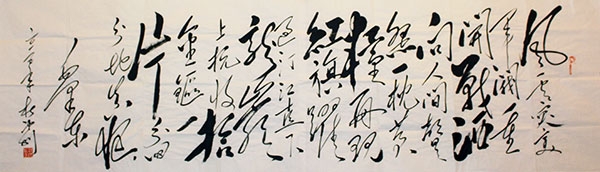 风云突变
军阀重
开战洒
向人间都是
怨一枕黄
粱再现
红旗跃
过汀江直下
龙岩
上杭收拾
金瓯一
片分田
分地真忙